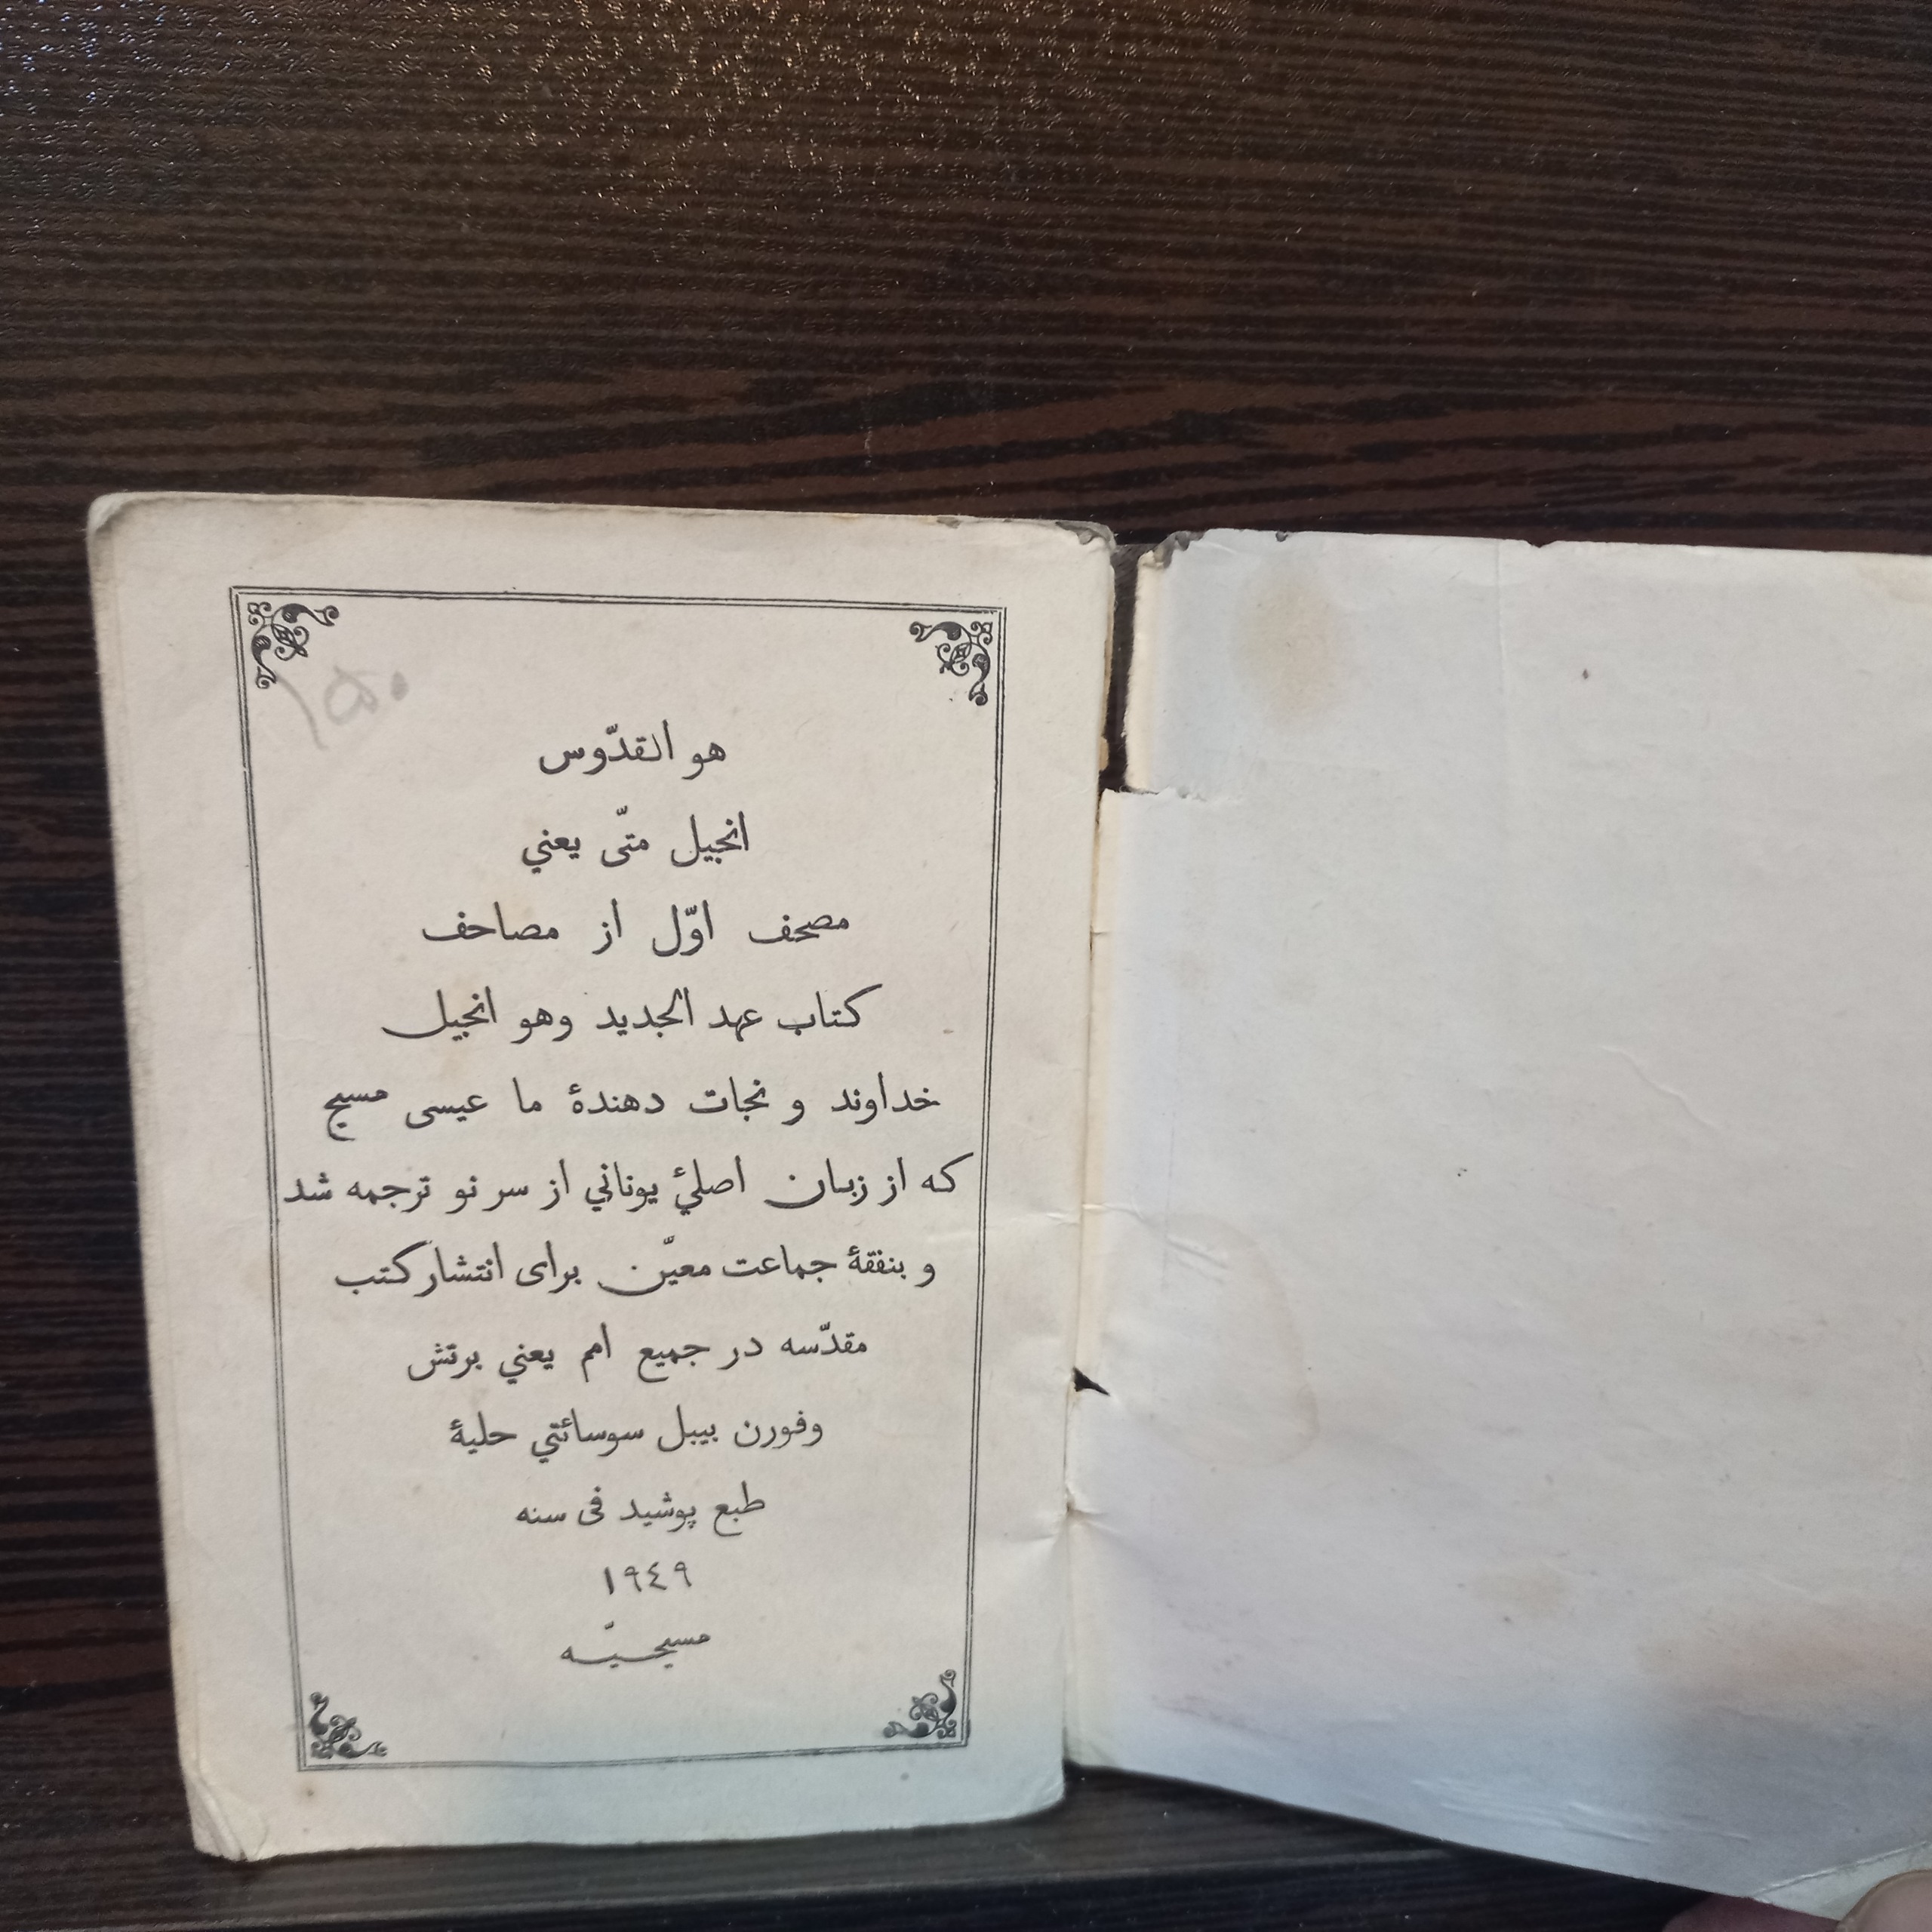 ۱۵۰
هو القدّوس
انجیل متّی یعني
مصحف اوّل از مصاحف
کتاب عهد الجدید وهو انجیل
خداوند و نجات دهندهٔ ما عیسی مسیح
که از زبان اصلیٔ یوناني از سر نو ترجمه شد
و بنفقهٔ جماعت معیّن برای انتشار کتب
مقدّسه در جمیع امم یعني برتش
وفورن بیبل سوسائتي حلیهٔ
طبع پوشید فی سنه
١٩٤٩
مسیحیّه